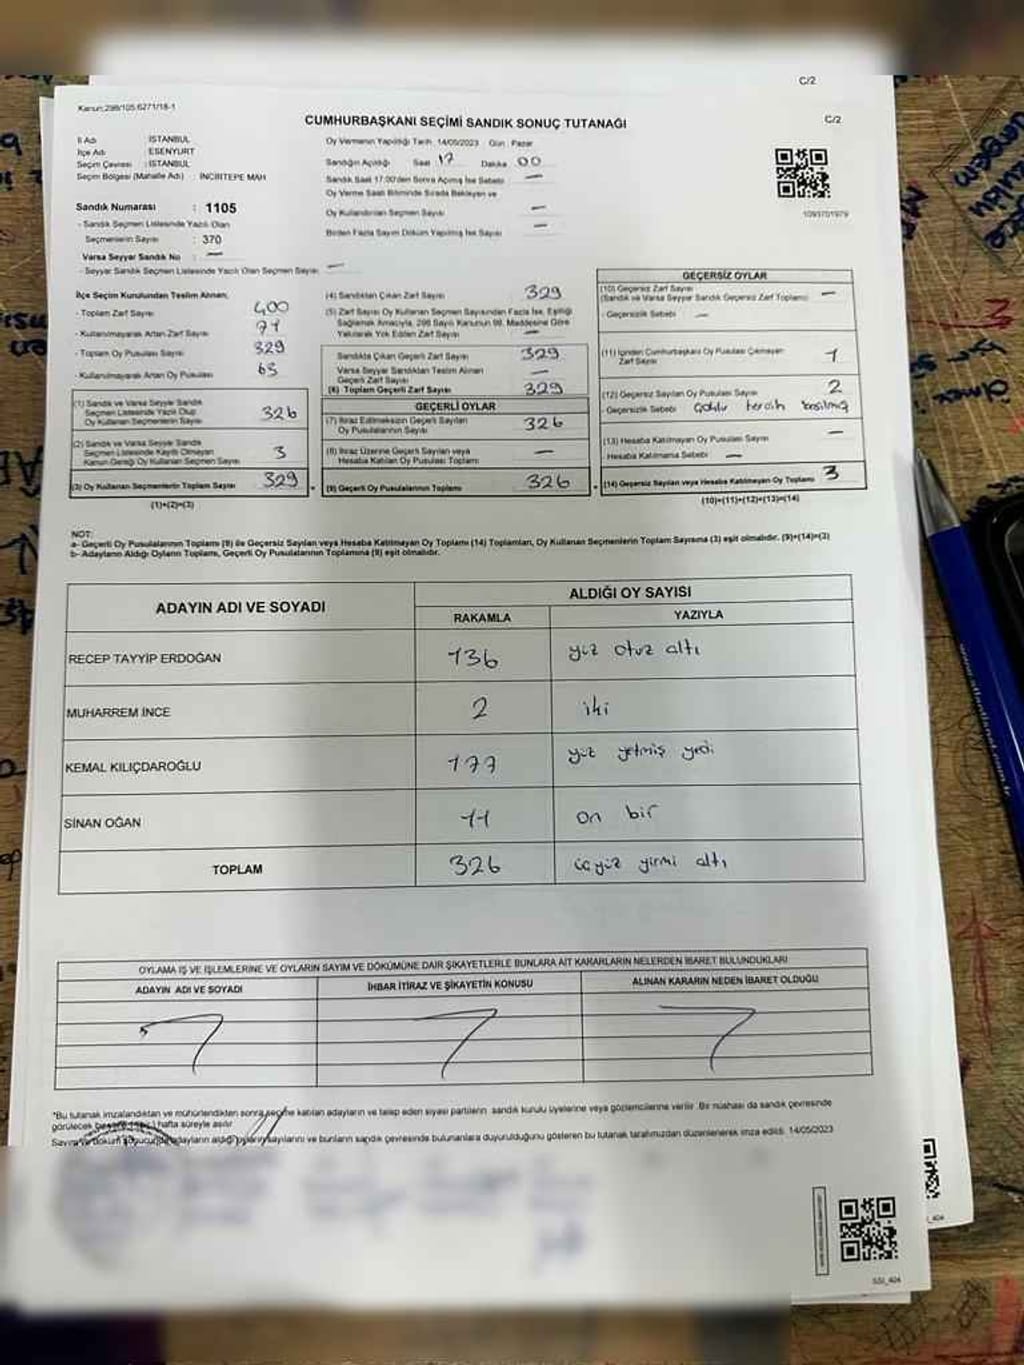 C/2
Kanun:298/105 6271/18-1
CUMHURBAŞKANI SEÇİMİ SANDIK SONUÇ TUTANAĞI
C/2
İl Adı : İSTANBUL
İlçe Adı : ESENYURT
Seçim Çevresi : İSTANBUL
Seçim Bölgesi (Mahalle Adı) : İNCİRTEPE MAH
Sandık Numarası : 1105
- Sandık Seçmen Listesinde Yazılı Olan
Seçmenlerin Sayısı : 370
Varsa Seyyar Sandık No : —
- Seyyar Sandık Seçmen Listesinde Yazılı Olan Seçmen Sayısı —
Oy Vermenin Yapıldığı Tarih 14/05/2023 Gün Pazar
Sandığın Açıldığı Saat 17 Dakika 00
Sandık Saat 17:00'den Sonra Açılmış İse Sebebi —
Oy Verme Saati Bitiminde Sırada Bekleyen ve
Oy Kullandırılan Seçmen Sayısı —
Birden Fazla Sayım Döküm Yapılmış İse Sayısı —
1093701979
İlçe Seçim Kurulundan Teslim Alınan;
- Toplam Zarf Sayısı 400
- Kullanılmayarak Artan Zarf Sayısı 71
- Toplam Oy Pusulası Sayısı 329
- Kullanılmayarak Artan Oy Pusulası 63
(1) Sandık ve Varsa Seyyar Sandık
Seçmen Listesinde Yazılı Olup
Oy Kullanan Seçmenlerin Sayısı 326
(2) Sandık ve Varsa Seyyar Sandık
Seçmen Listesinde Kayıtlı Olmayan
Kanun Gereği Oy Kullanan Seçmen Sayısı 3
(3) Oy Kullanan Seçmenlerin Toplam Sayısı 329
(1)+(2)=(3)
(4) Sandıktan Çıkan Zarf Sayısı 329
(5) Zarf Sayısı Oy Kullanan Seçmen Sayısından Fazla İse, Eşitliği
Sağlamak Amacıyla, 298 Sayılı Kanunun 98. Maddesine Göre
Yakılarak Yok Edilen Zarf Sayısı —
Sandıkta Çıkan Geçerli Zarf Sayısı 329
Varsa Seyyar Sandıktan Teslim Alınan
Geçerli Zarf Sayısı —
(6) Toplam Geçerli Zarf Sayısı 329
GEÇERLİ OYLAR
(7) İtiraz Edilmeksizin Geçerli Sayılan
Oy Pusulalarının Sayısı 326
(8) İtiraz Üzerine Geçerli Sayılan veya
Hesaba Katılan Oy Pusulası Toplamı —
(9) Geçerli Oy Pusulalarının Toplamı 326
GEÇERSİZ OYLAR
(10) Geçersiz Zarf Sayısı
(Sandık ve Varsa Seyyar Sandık Geçersiz Zarf Toplamı) —
- Geçersizlik Sebebi —
(11) İçinden Cumhurbaşkanı Oy Pusulası Çıkmayan
Zarf Sayısı 1
(12) Geçersiz Sayılan Oy Pusulası Sayısı 2
- Geçersizlik Sebebi tercih basılmış
(13) Hesaba Katılmayan Oy Pusulası Sayısı —
Hesaba Katılmama Sebebi —
(14) Geçersiz Sayılan veya Hesaba Katılmayan Oy Toplamı 3
(10)+(11)+(12)+(13)=(14)
NOT:
a- Geçerli Oy Pusulalarının Toplamı (9) ile Geçersiz Sayılan veya Hesaba Katılmayan Oy Toplamı (14) Toplamları, Oy Kullanan Seçmenlerin Toplam Sayısına (3) eşit olmalıdır. (9)+(14)=(3)
b- Adayların Aldığı Oyların Toplamı, Geçerli Oy Pusulalarının Toplamına (9) eşit olmalıdır.
ADAYIN ADI VE SOYADI
ALDIĞI OY SAYISI
RAKAMLA YAZIYLA
RECEP TAYYİP ERDOĞAN 136 yüz otuz altı
MUHARREM İNCE 2 iki
KEMAL KILIÇDAROĞLU 177 yüz yetmiş yedi
SİNAN OĞAN 11 on bir
TOPLAM 326 üçyüz yirmi altı
OYLAMA İŞ VE İŞLEMLERİNE VE OYLARIN SAYIM VE DÖKÜMÜNE DAİR ŞİKAYETLERLE BUNLARA AİT KARARLARIN NELERDEN İBARET BULUNDUKLARI
ADAYIN ADI VE SOYADI İHBAR İTİRAZ VE ŞİKAYETİN KONUSU ALINAN KARARIN NEDEN İBARET OLDUĞU
*Bu tutanak imzalandıktan ve mühürlendikten sonra seçime katılan adayların ve talep eden siyasi partilerin sandık kurulu üyelerine veya gözlemcilerine verilir. Bir nüshası da sandık çevresinde
görülecek bir hafta süreyle asılır
Sayım ve döküm sonucunda adayların aldığı oyların sayılarını ve bunların sandık çevresinde bulunanlara duyurulduğunu gösteren bu tutanak tarafımızdan düzenlenerek imza edildi. 14/05/2023
SSI_404